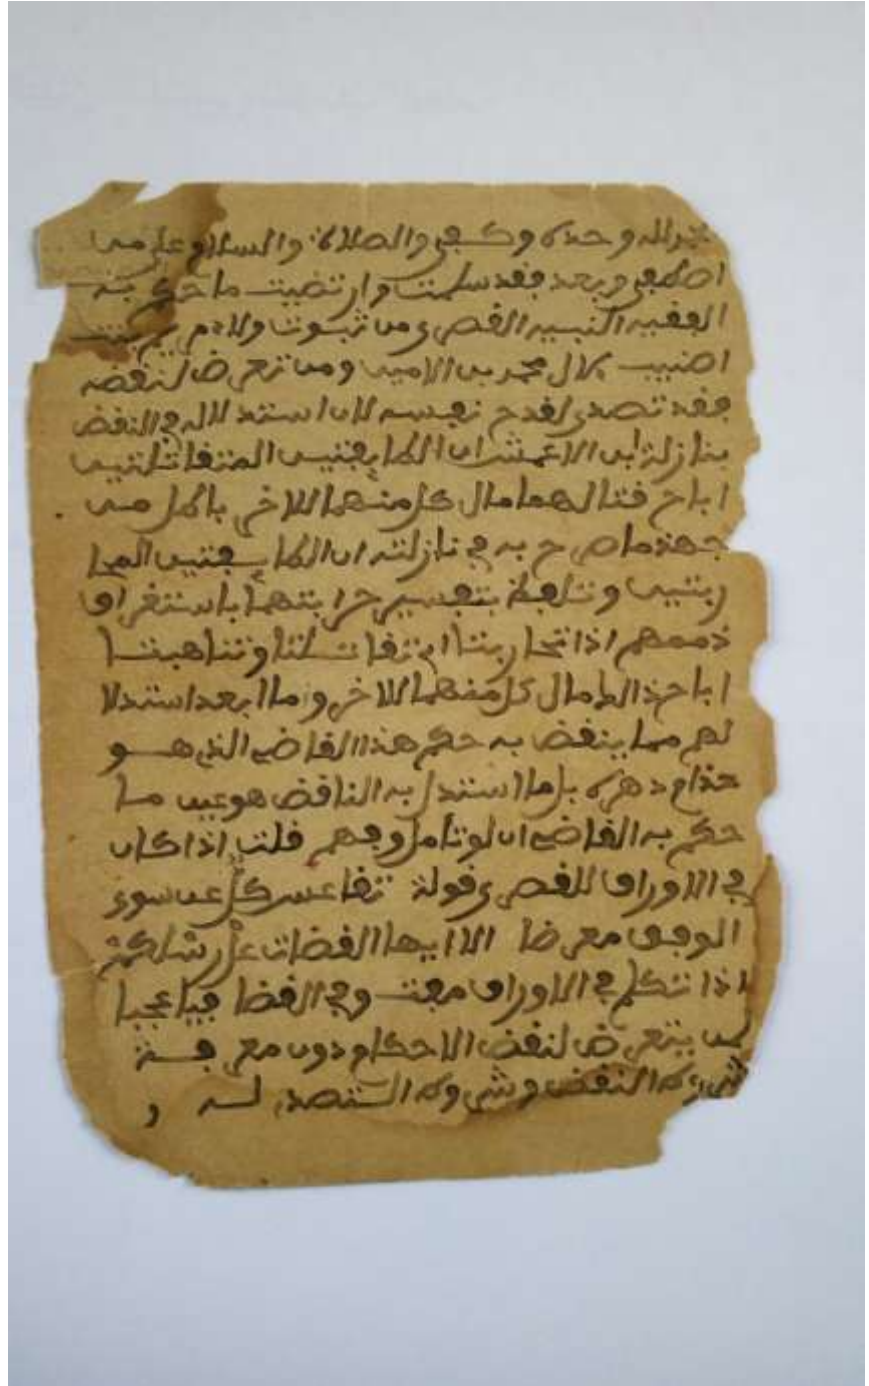 الحمد لله وحده وكفى والصلاة والسلام على من
اصطفى وبعد فقد سلمت وارتضيت ما حكم به
الفقيه النبيه القصري من ثبوت ولادم
اضبيب بمال محمد بن الامين ومن تعرض لنقضه
فقد تصدى لقدح نفسه لان استدلاله في النقض
بنازلة ابن الاعمش ان الطايفتين المتقاتلتين
اباح قتالهما مال كل منهما للاخرى باطل من
جهة ما صرح به في نازلته ان الطايفتين المحا
ربتين وتلفظ بتفسير حرابتهما باستغراق
ذممهم اذا تحاربتا اي تقاتلتا وتناهبتا
اباح ذالك مال كل منهما للاخرى وما ابعد استدلا
لهم مما ينقض به حكم هذا القاضي الذي هو
حذام دهره بل ما استدل به الناقض هو عين ما
حكم به القاضي ان لو تامل وفهم قلت اذا كان
في الاوراق للقصري قولة تقاعس كل عن سوى
الوفق معرضا الا ايها القضات على رشلكم
اذا تتكلم في الاوراق مفت وفي القضا فيا عجبا
لمن يتعرض لنقض الاحكام دون معرفة
شروط النقض وشروط التصدي له